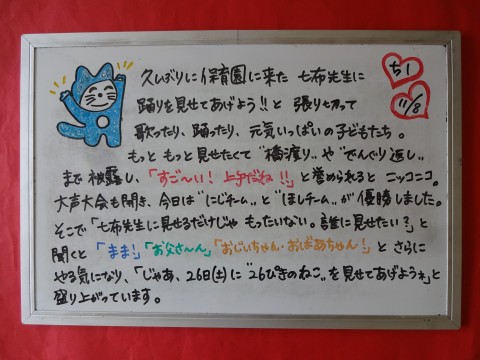 久しぶりに保育園に来た 七布先生に
踊りを見せてあげよう!!と 張り切って
歌ったり、踊ったり、元気いっぱいの子どもたち。
もっと もっと見せたくて "橋渡り"や"でんぐり返し"
まで 披露し、「すご〜い!上手だね!!」と 誉められると ニッコニコ。
大声大会も開き、今日は"にじチーム"と"ほしチーム"が優勝しました。
そこで「七布先生に見せるだけじゃ もったいない。誰に見せたい?」と
聞くと「まま!」「お父さ〜ん」「おじいちゃん・おばあちゃん!」と さらに
やる気になり、「じゃあ、26日(土)に"26ぴきのねこ"を見せてあげようね」と
盛り上がっています。
ち1
11/8